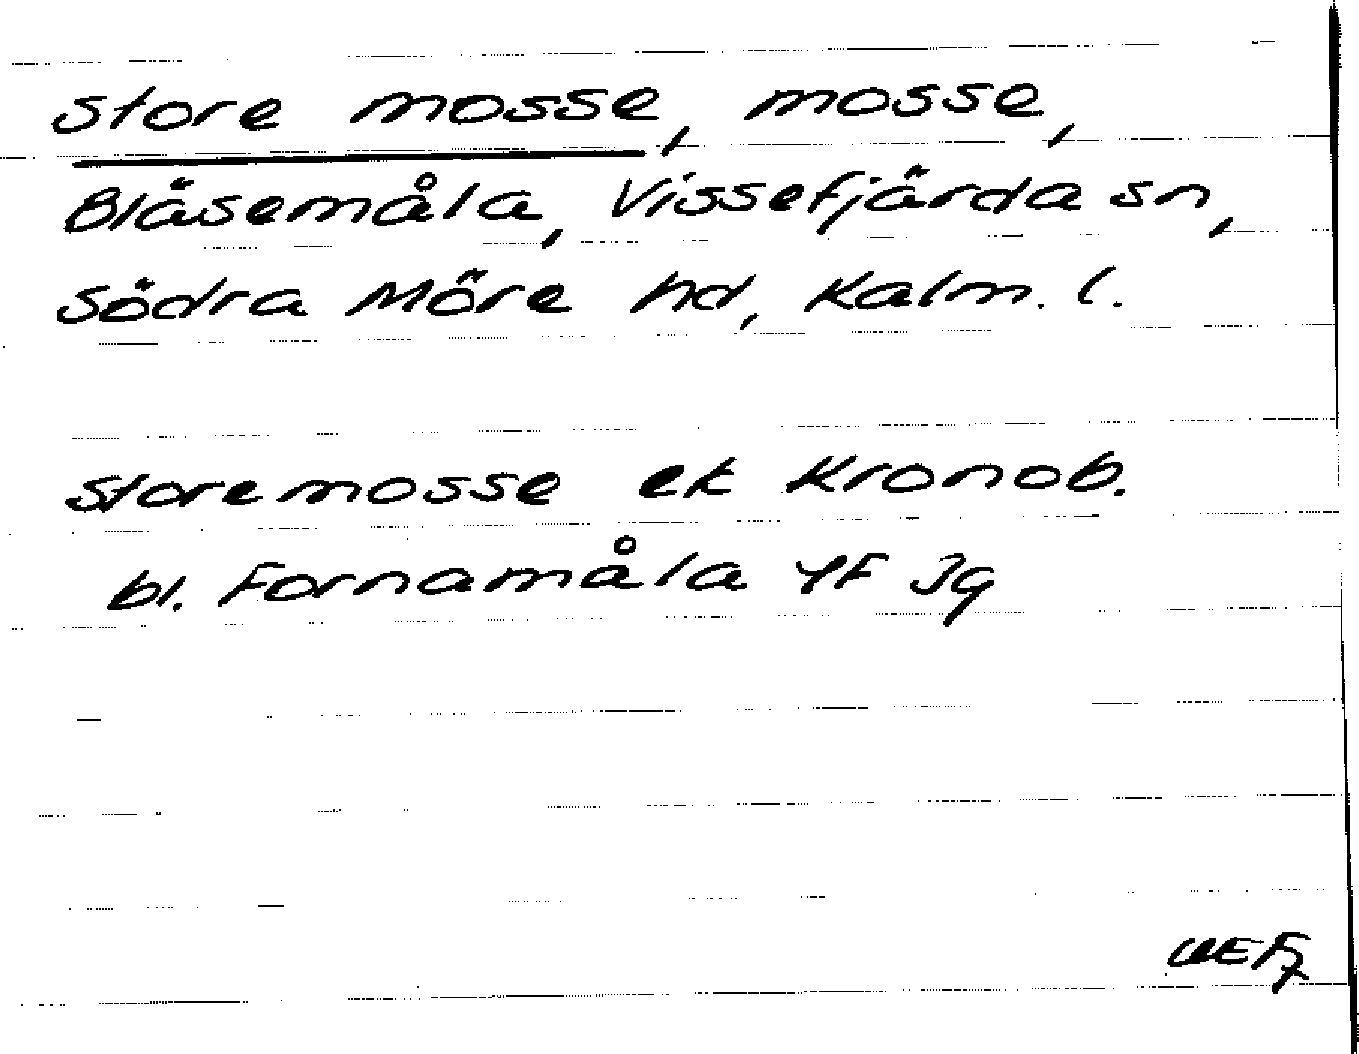 store mosse, mosse,
Bläsemåla, Vissefjärda sn,
Södra Möre hd, Kalm. l.
Storemosse ek Kronob.
bl. Fornamåla YF Jg